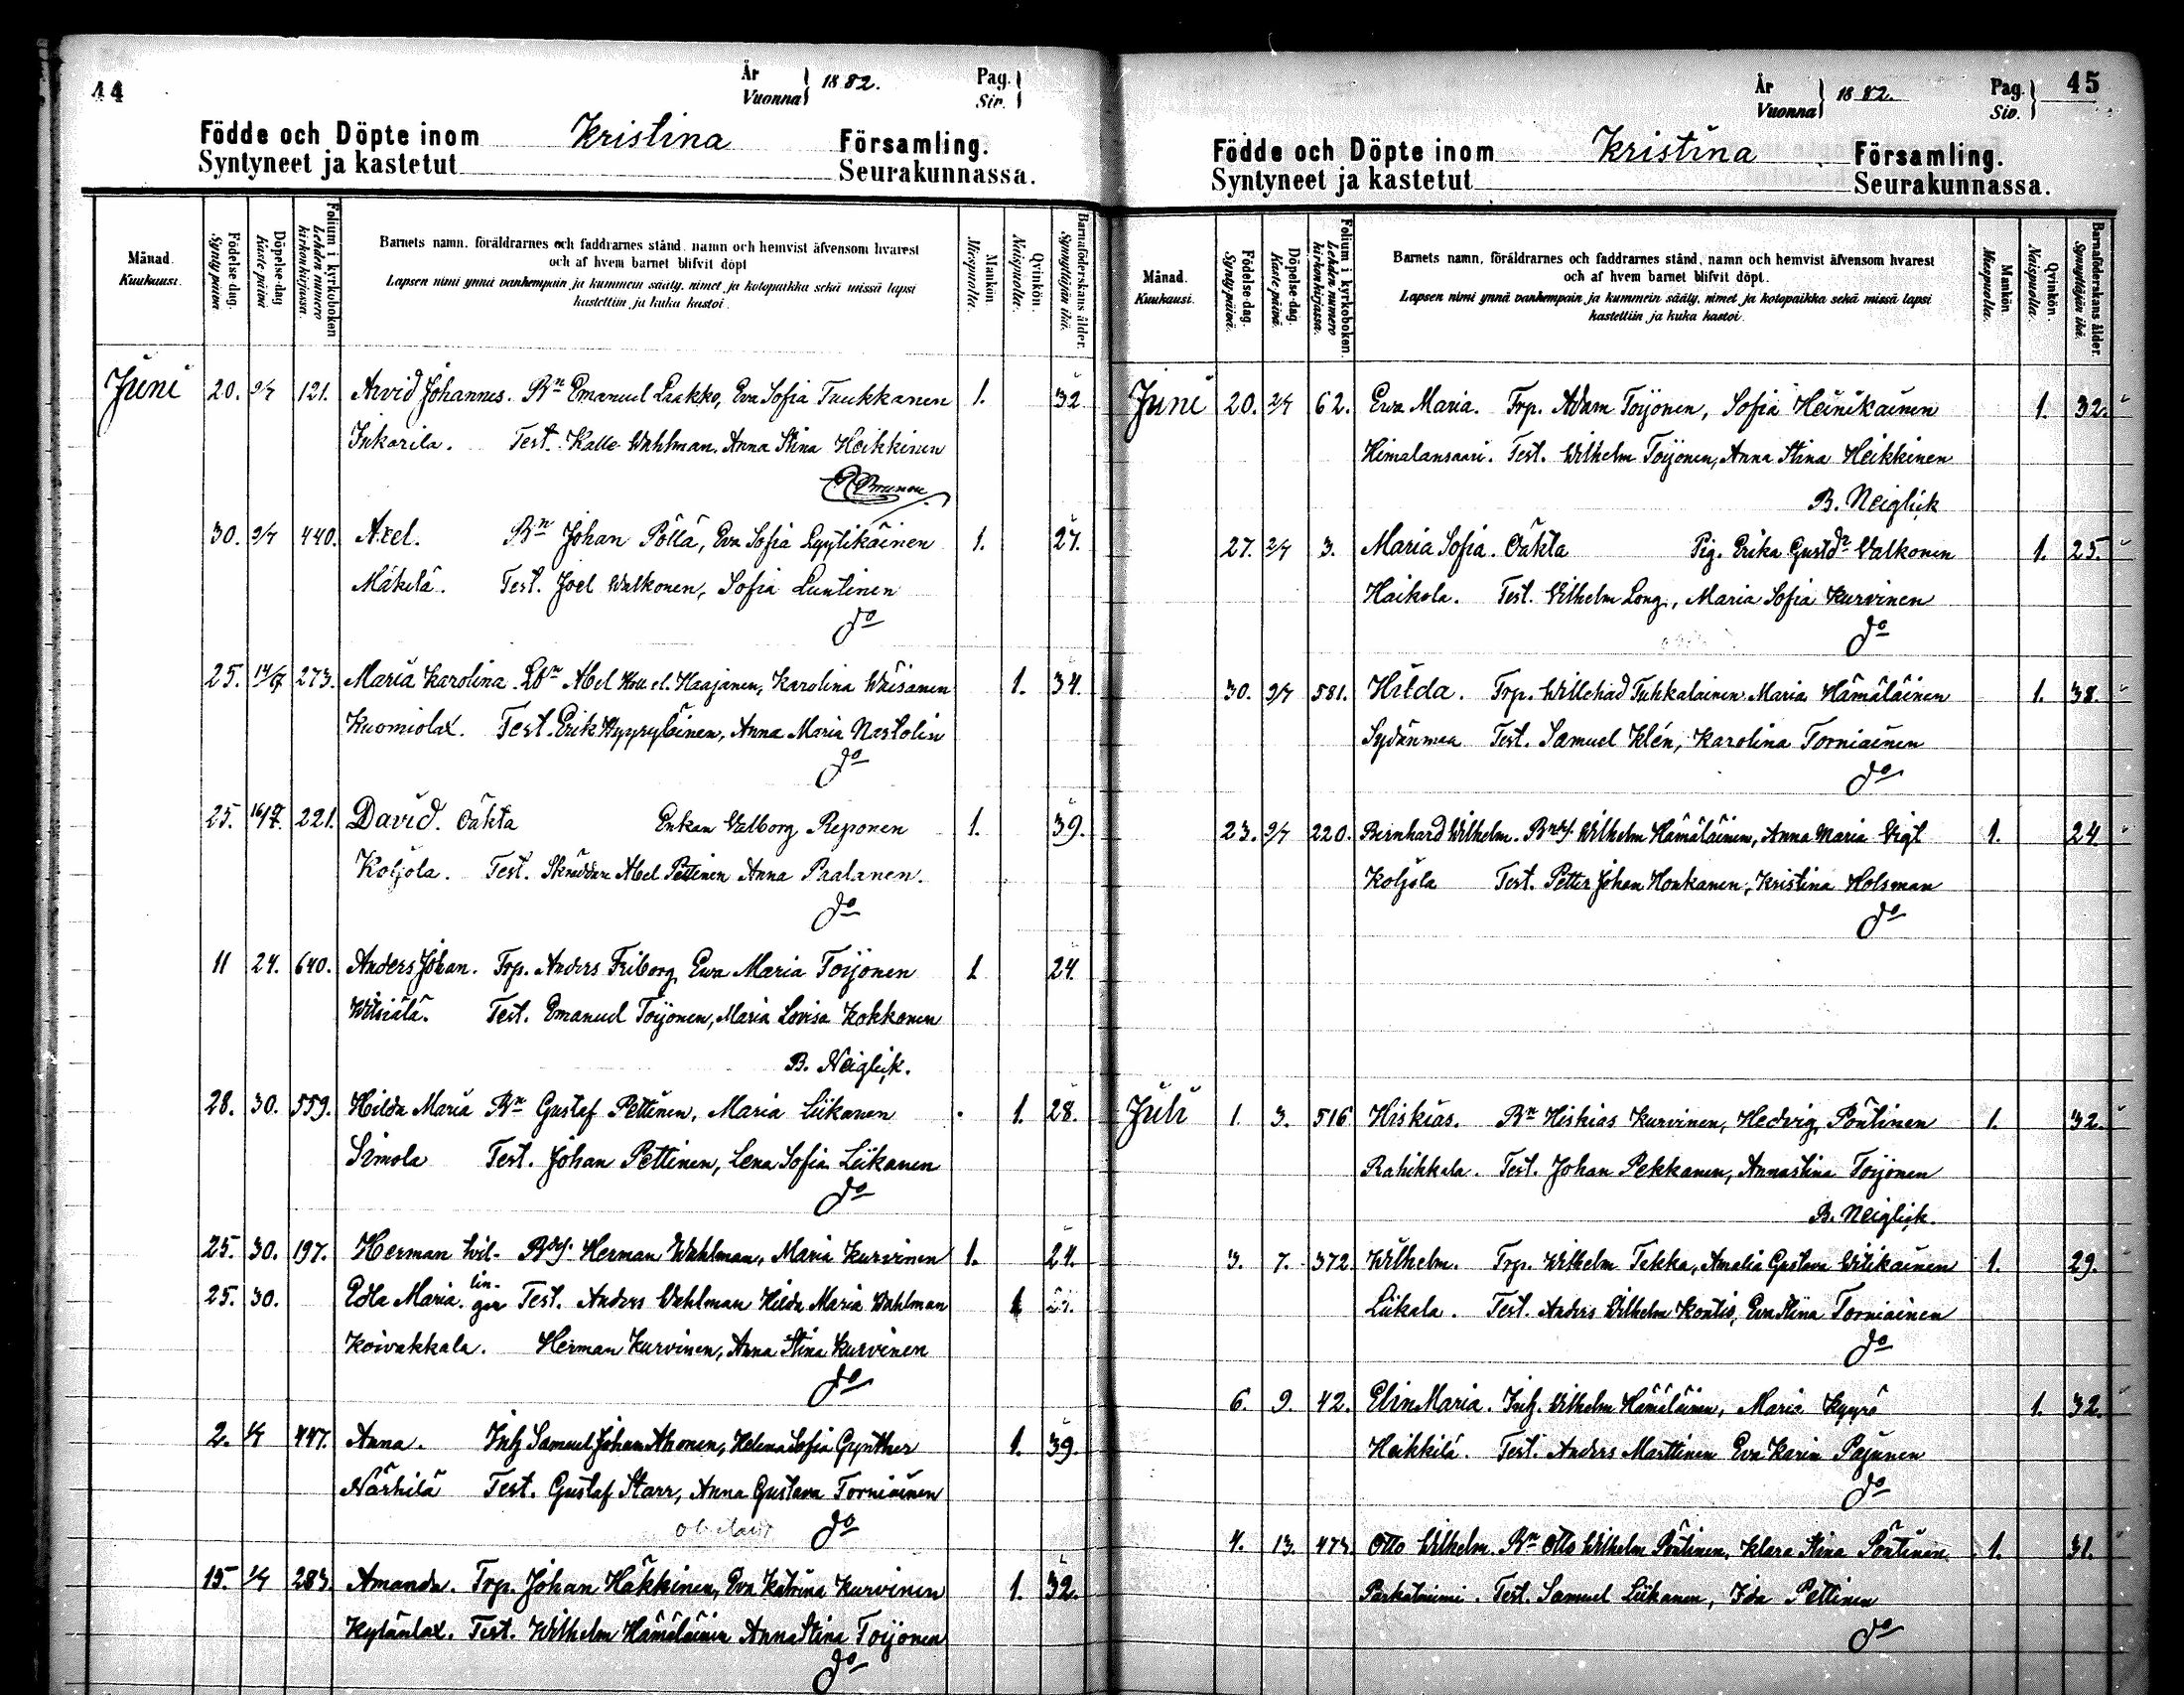 44
År
Vuonna } 1882.
Pag.
Siv. }
Födde och Döpte inom Kristina Församling.
Syntyneet ja kastetut Seurakunnassa.
Månad.
Kuukausi.
Födelse-dag.
Synty-päivä
Döpelse-dag
Kaste-päivä
Folium i kyrkoboken
Lehden numero kirkonkirjassa.
Barnets namn, föräldrarnes och faddrarnes stånd, namn och hemvist äfvensom hvarest
och af hvem barnet blifvit döpt
Lapsen nimi ynnä vanhempain ja kummein sääty, nimet ja kotopaikka sekä missä lapsi
kastettiin ja kuka kastoi.
Mankön.
Miespuolta.
Qvinkön.
Naispuolta.
Barnaföderskans ålder.
Synnyttäjän ikä.
Juni 20. 2/7 121. Arvid Johannes. Bn Emanuel Laakko, Eva Sofia Tuukkanen 1. 32
Inkarila. Test. Kalle Wahlman, Anna Stina Heikkinen
30. 2/7 440. Axel. Bn Johan Pöllä, Eva Sofia Lyytikäinen 1. 27.
Mäkelä. Test. Joel Walkonen, Sofia Luntinen
do
25. 14/7 273. Maria Karolina. Abel Haajanen, Karolina Wäisänen 1. 34.
Kuomiolax. Test. Erik Hyyryläinen, Anna Maria Nastolin
do
25. 16/7. 221. David. Oäkta Enkan Walborg Reponen 1. 39.
Koljola. Test. Skräddare Abel Pettinen Anna Paalanen.
do
11 24. 640. Anders Johan. Trp. Anders Friborg Ewa Maria Toijonen 1 24.
Witsiälä. Test. Emanuel Toijonen, Maria Lovisa Kokkonen
B. Neiglick.
28. 30. 559. Hilda Maria Bn Gustaf Pettinen, Maria Liikanen 1. 28.
Simola Test. Johan Pettinen, Lena Sofia Liikanen
do
25. 30. 197. Herman tvil- Herman Wahlman, Maria Kurvinen 1. 24.
25. 30. Edla Maria. lin-gar Test. Anders Wahlman Hilda Maria Wahlman 1
Koivakkala. Herman Kurvinen, Anna Stina Kurvinen
do
2. 1/7 447. Anna. Inh Samuel Johan Ahonen, Helena Sofia Gynther 1. 39.
Närhilä Test. Gustaf Starr, Anna Gustava Torniainen
do
15. 1/7 283. Amanda. Trp. Johan Häkkinen, Eva Katrina Kurvinen 1. 32.
Kylänlax. Test. Wilhelm Hämäläinen Anna Stina Toijonen
do
45
År
Vuonna } 1882.
Pag.
Siv. }
Födde och Döpte inom Kristina Församling.
Syntyneet ja kastetut Seurakunnassa.
Månad.
Kuukausi.
Födelse-dag.
Synty-päivä.
Döpelse-dag.
Kaste-päivä.
Folium i kyrkoboken.
Lehden numero kirkonkirjassa.
Barnets namn, föräldrarnes och faddrarnes stånd, namn och hemvist äfvensom hvarest
och af hvem barnet blifvit döpt.
Lapsen nimi ynnä vanhempain ja kummein sääty, nimet ja kotopaikka sekä missä lapsi
kastettiin ja kuka kastoi.
Mankön
Miespuolta.
Qvinkön.
Naispuolta.
Barnaföderskans ålder.
Synnyttäjän ikä.
Juni 20. 2/7 62. Ewa Maria. Trp. Adam Toijonen, Sofia Heinikainen 1. 32.
Himalansaari. Test. Wilhelm Toijonen, Anna Stina Heikkinen
B. Neiglick
27. 2/7 3. Maria Sofia. Oäkta Pig. Erika Gustdr Walkonen 1. 25.
Haikola. Test. Wilhelm Long, Maria Sofia Kurvinen
do
30. 2/7 581. Hilda. Trp. Willehad Tuhkalainen Maria Hämäläinen 1. 38.
Sydänmaa Test. Samuel Klén, Karolina Torniainen
do
23. 2/7 220. Bernhard Wilhelm. Wilhelm Hämäläinen, Anna Maria Vigt 1. 24.
Koljola Test. Petter Johan Honkanen, Kristina Holsman
do
Juli 1. 3. 516 Hiskias. Bn Hiskias Kurvinen, Hedvig Pöntinen 1. 32.
Rahikkala. Test. Johan Pekkanen, Annastina Toijonen
B. Neiglick.
3. 7. 372 Wilhelm. Trp. Wilhelm Tekka, Amalia Gustava Witikainen 1. 29.
Liikala. Test. Anders Wilhelm Kontio, Eva Stina Torniainen
do
6. 9. 42. Elin Maria. Inh. Wilhelm Hämäläinen, Maria Kyyrö 1. 32.
Heikkilä. Test. Anders Marttinen Eva Karin Pajunen
do
4. 13. 473. Otto Wilhelm. Bn Otto Wilhelm Pöntinen, Klara Stina Pöntinen 1. 31.
Test. Samuel Liikanen, Ida Pettinen
do